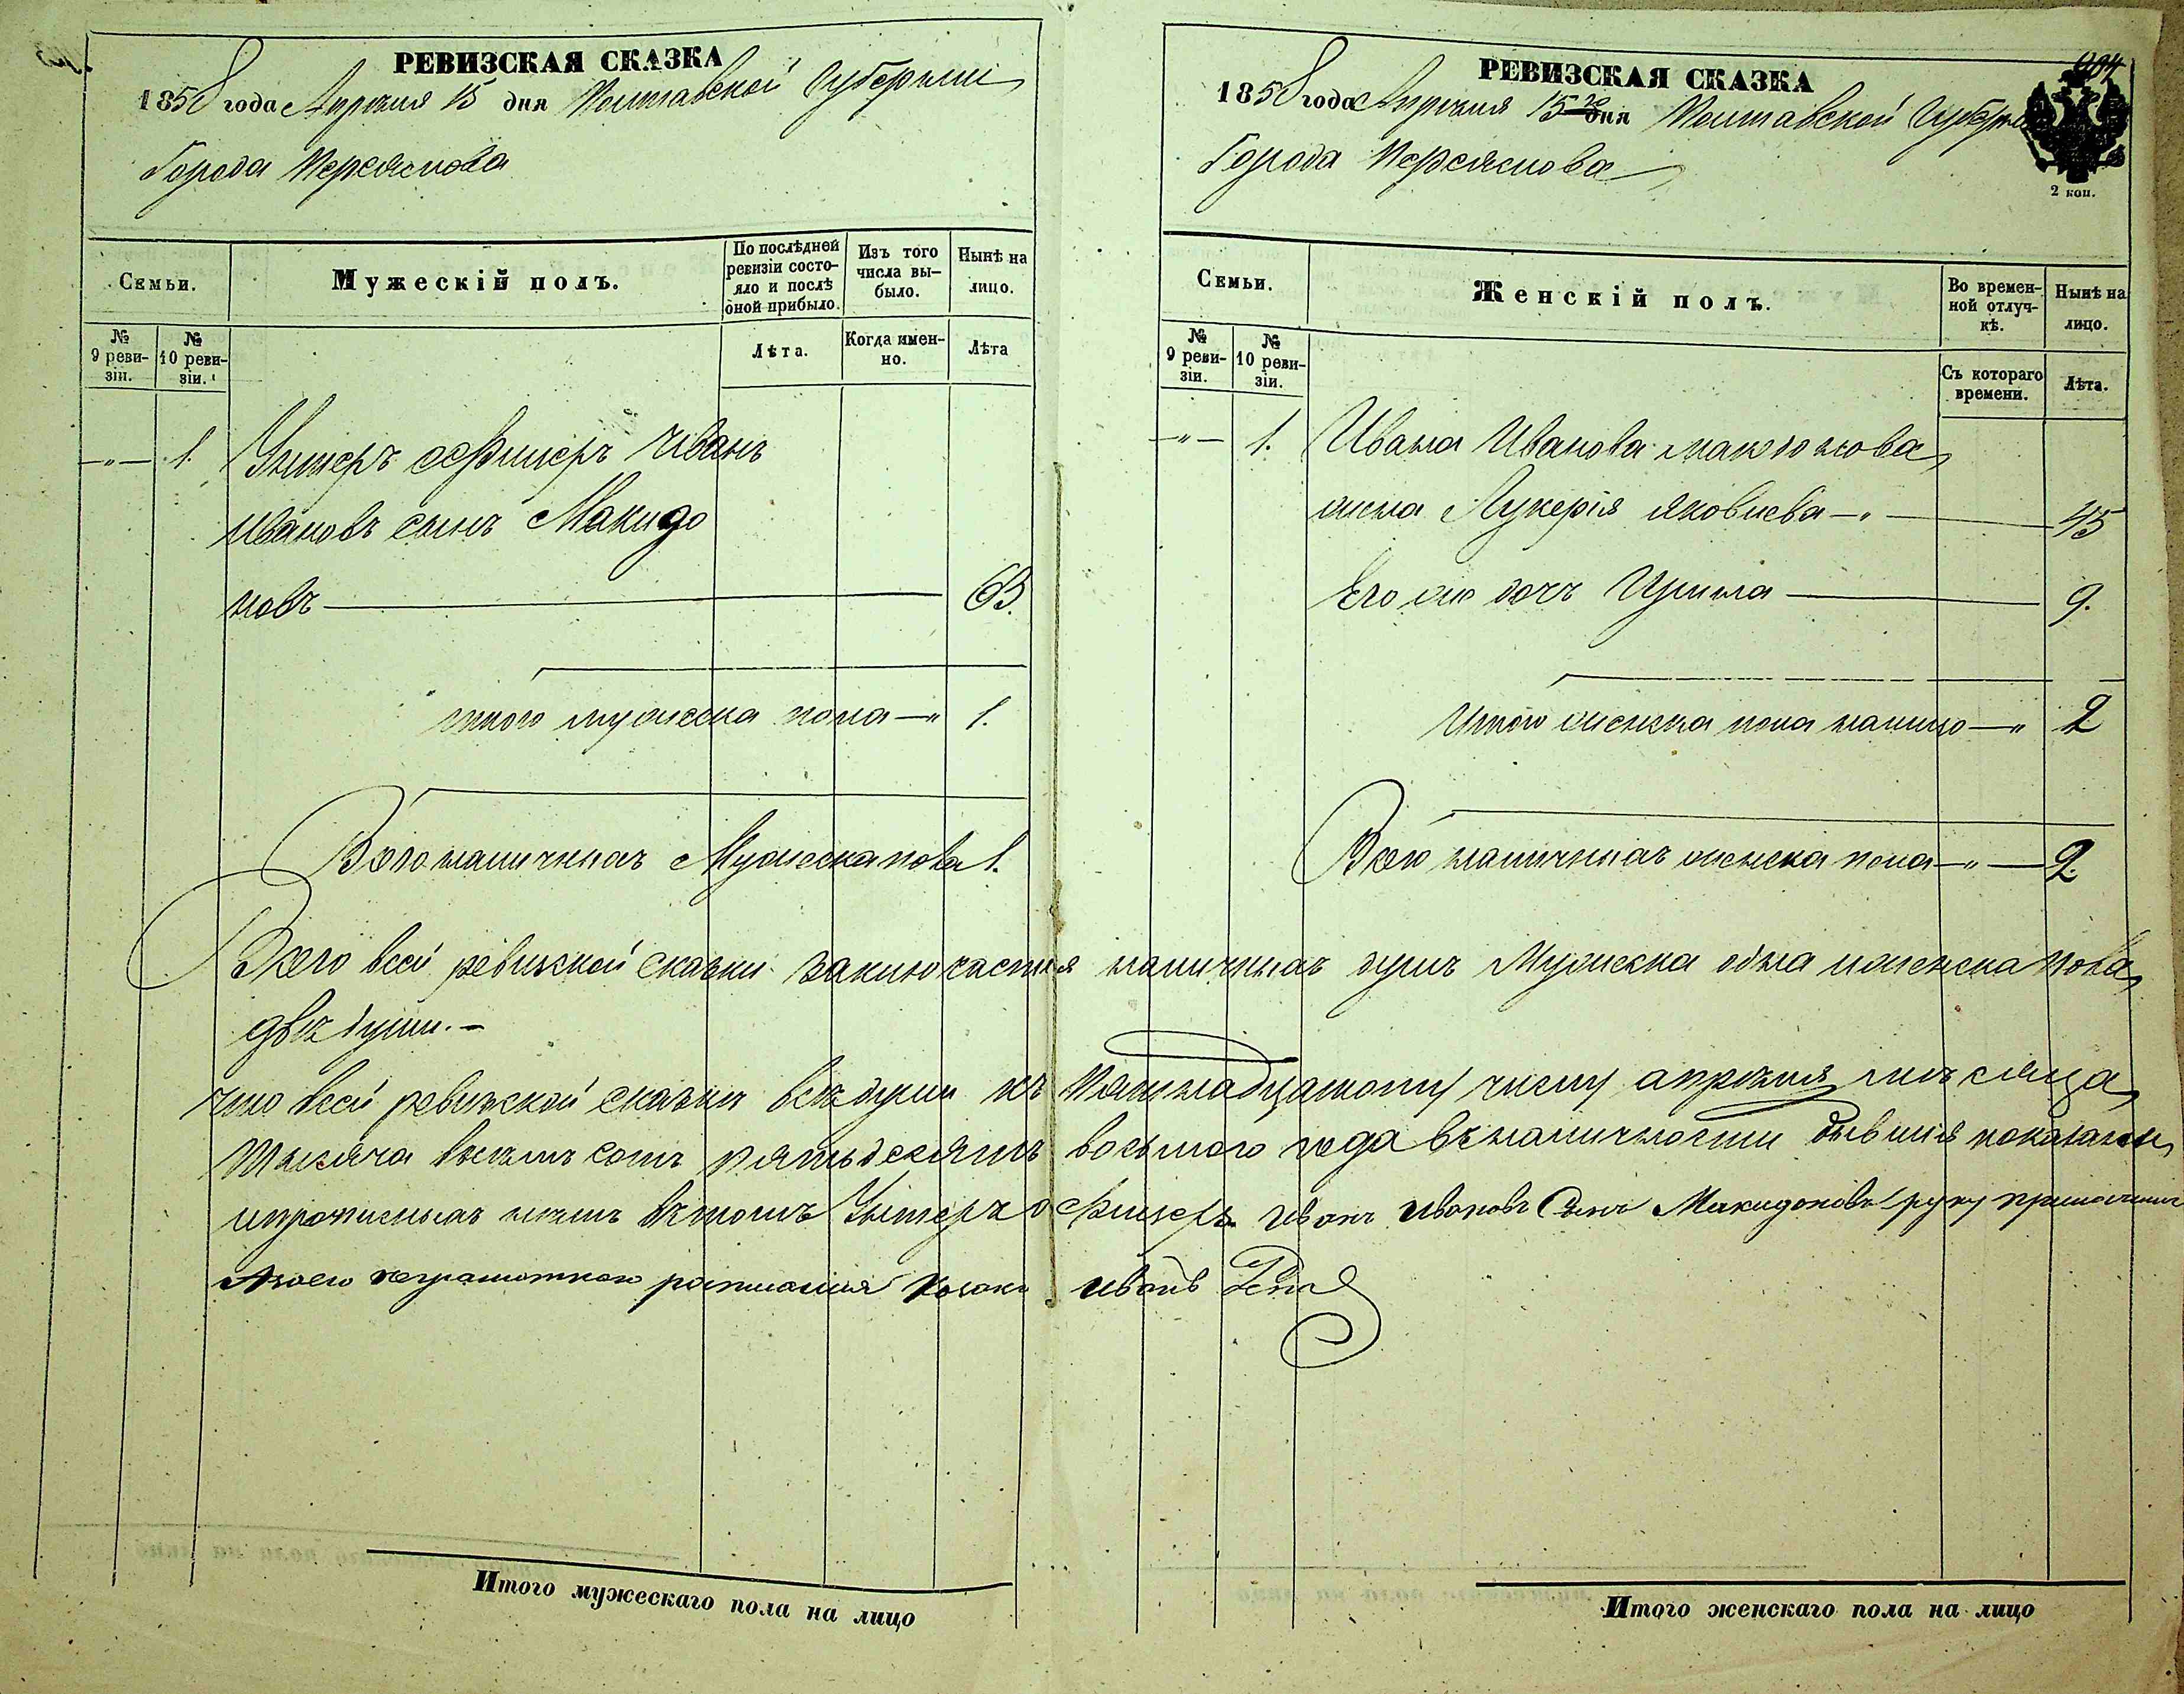 РЕВИЗСКАЯ СКАЗКА
1858 года Апрѣля 15 дня Полтавской Губерніи
Города Переяслова
Семьи.
Мужескій полъ.
По послѣдней ревизіи состо-
яло и послѣ оной прибыло.
Изъ того числа вы-
было.
Нынѣ на лицо.
№ 9 реви-
зіи.
№ 10 реви-
зіи.
Лѣта.
Когда имен-
но.
Лѣта
—„— 1. Унтеръ офицеръ Иванъ
Ивановъ сынъ Макидо
новъ 63.
итого мужеска пола —„ 1.
Всего наличныхъ Мужеска пола 1.
РЕВИЗСКАЯ СКАЗКА
1858 года Апрѣля 15 го дня Полтавской Губерніи
Города Переяслова
2 коп.
Семьи.
Женскій полъ.
Во времен-
ной отлуч-
кѣ.
Нынѣ на лицо.
№ 9 реви-
зіи.
№ 10 реви-
зіи.
Съ котораго времени.
Лѣта.
—„— 1. Ивана Иванова Макидонова
жена Лукерія Яковлева —„— 45
Его же дочь Ирина 9.
Итого женска пола налицо —„ 2
Всего наличныхъ женска пола —„— 2.
Всего всей ревизкой сказки заключается наличныхъ душъ Мужеска одна и женска пола
двѣ души. —
что всей ревизской сказки всѣ души къ пятнадцатому числу апрѣля мѣсяца
тысяча восемь сотъ пятьдесятъ восьмого года въ наличности бывшия показаны
и прописныхъ нѣтъ въ томъ Унтеръ офицеръ Иванъ Ивановъ Сынъ Макидоновъ руку приложилъ
неграмотного козакъ Иванъ
Итого мужескаго пола на лицо
Итого женскаго пола на лицо